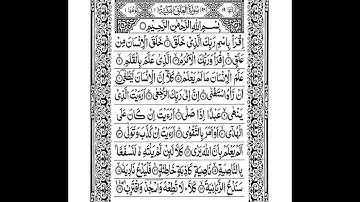 بِسْمِ اللهِ الرَّحْمٰنِ الرَّحِيْمِ
اِقْرَاْ بِاسْمِ رَبِّكَ الَّذِيْ خَلَقَ خَلَقَ الْاِنْسَانَ مِنْ
عَلَقٍ اِقْرَاْ وَرَبُّكَ الْاَكْرَمُ الَّذِيْ عَلَّمَ بِالْقَلَمِ
عَلَّمَ الْاِنْسَانَ مَا لَمْ يَعْلَمْ كَلَّا اِنَّ الْاِنْسَانَ لَيَطْغٰى
اَنْ رَّاٰهُ اسْتَغْنٰى اِنَّ اِلٰى رَبِّكَ الرُّجْعٰى اَرَءَيْتَ الَّذِيْ
يَنْهٰى عَبْدًا اِذَا صَلّٰى اَرَءَيْتَ اِنْ كَانَ عَلَى
الْهُدٰى اَوْ اَمَرَ بِالتَّقْوٰى اَرَءَيْتَ اِنْ كَذَّبَ وَتَوَلّٰى
اَلَمْ يَعْلَمْ بِاَنَّ اللهَ يَرٰى كَلَّا لَئِنْ لَّمْ يَنْتَهِ لَنَسْفَعًا
بِالنَّاصِيَةِ نَاصِيَةٍ كَاذِبَةٍ خَاطِئَةٍ فَلْيَدْعُ نَادِيَهٗ
سَنَدْعُ الزَّبَانِيَةَ كَلَّا لَا تُطِعْهُ وَاسْجُدْ وَاقْتَرِبْ